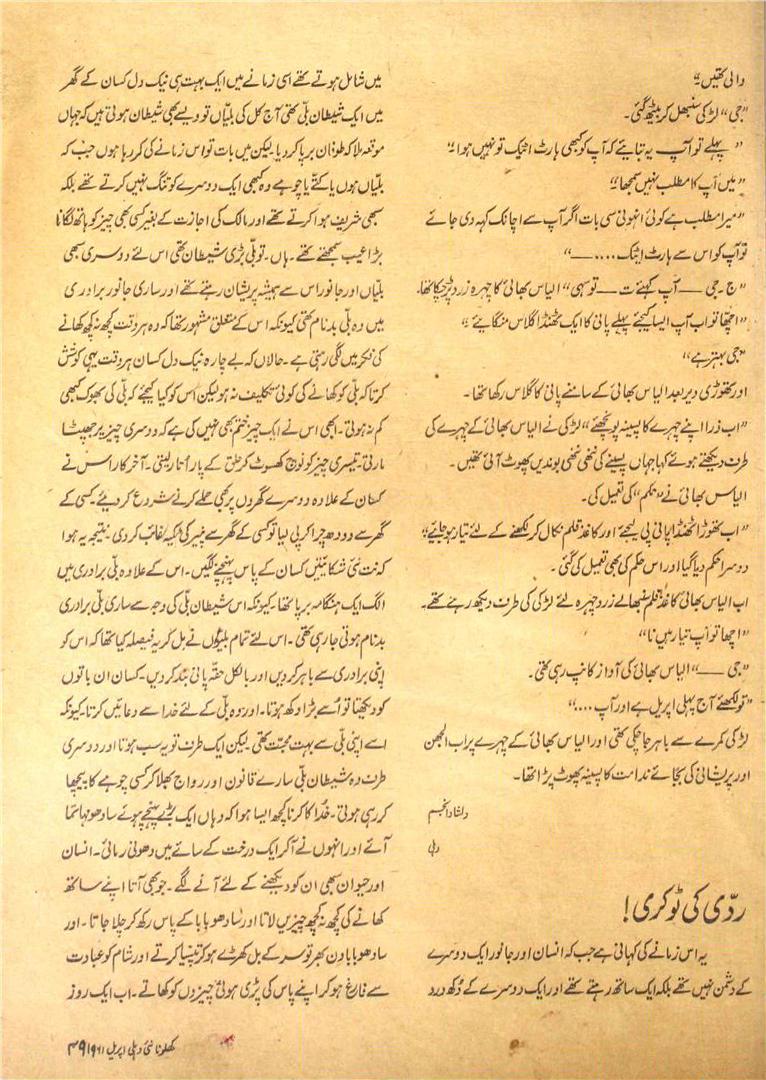 والی تھیں۔"
"جی" لڑکی سنبھل کر بیٹھ گئی۔
"پہلے تو آپ یہ بتایئے کہ آپ کو کبھی ہارٹ اٹیک تو نہیں ہوا؟"
"میں آپ کا مطلب نہیں سمجھا؟"
"میرا مطلب ہے کوئی انہونی سی بات اگر آپ سے اچانک کہہ دی جائے
تو آپ کو اس سے ہارٹ اٹیک ....——"
"ج۔ جی —— آپ کہئے ت — تو سہی" الیاس بھائی کا چہرہ زرد پڑ چکا تھا۔
"اچھا تو اب آپ ایسا کیجئے پہلے پانی کا ایک ٹھنڈا گلاس منگایئے"
"جی بہتر ہے"
اور تھوڑی دیر بعد الیاس بھائی کے سامنے پانی کا گلاس رکھا تھا۔
"اب ذرا اپنے چہرے کا پسینہ پونچھئے" لڑکی نے الیاس بھائی کے چہرے کی
طرف دیکھتے ہوئے کہا جہاں پسینے کی ننھی ننھی بوندیں پھوٹ آئی تھیں۔
الیاس بھائی نے "حکم" کی تعمیل کی۔
"اب تھوڑا ٹھنڈا پانی پی لیجئے اور کاغذ قلم نکال کر لکھنے کے لئے تیار ہو جایئے"
دوسرا حکم دیا گیا اور اس حکم کی بھی تعمیل کی گئی۔
اب الیاس بھائی کاغذ قلم سنبھالے زرد چہرہ لئے لڑکی کی طرف دیکھ رہے تھے۔
"اچھا تو آپ تیار ہیں نا"
"جی ——" الیاس بھائی کی آواز کانپ رہی تھی۔
"تو لکھئے آج پہلی اپریل ہے اور آپ ...."
لڑکی کمرے سے باہر جا چکی تھی اور الیاس بھائی کے چہرے پر اب الجھن
اور پریشانی کی بجائے ندامت کا پسینہ پھوٹ پڑا تھا۔
دلشاد انجم
دہلی
ردّی کی ٹوکری!
یہ اس زمانے کی کہانی ہے جب کہ انسان اور جانور ایک دوسرے
کے دشمن نہیں تھے بلکہ ایک ساتھ رہتے تھے اور ایک دوسرے کے دُکھ درد
میں شامل ہوتے تھے اسی زمانے میں ایک بہت ہی نیک دل کسان کے گھر
میں ایک شیطان بلّی تھی آج کل کی بلّیاں تو ویسے بھی شیطان ہوتی ہیں کہ جہاں
موقعہ ملا کہ طوفان برپا کر دیا۔ لیکن میں بات تو اس زمانے کی کر رہا ہوں جب کہ
بلّیاں ہوں یا کتّے یا چوہے وہ کبھی ایک دوسرے کو تنگ نہیں کرتے تھے بلکہ
سبھی شریف ہوا کرتے تھے اور مالک کی اجازت کے بغیر کسی بھی چیز کو ہاتھ لگانا
بڑا عیب سمجھتے تھے۔ ہاں۔ تو بلّی بڑی شیطان تھی اس لئے دوسری سبھی
بلّیاں اور جانور اس سے ہمیشہ پریشان رہتے تھے اور ساری جانور برادری
میں وہ بلّی بدنام تھی کیونکہ اس کے متعلق مشہور تھا کہ وہ ہر وقت کچھ نہ کچھ کھانے
کی فکر میں لگی رہتی ہے۔ حالاں کہ بے چارہ نیک دل کسان ہر وقت یہی کوشش
کرتا کہ بلّی کو کھانے کی کوئی تکلیف نہ ہو لیکن اس کو کیا کیجئے کہ بلّی کی بھوک کبھی
کم نہ ہوتی۔ ابھی اس نے ایک چیز ختم بھی نہیں کی ہے کہ دوسری چیز پر جھپٹا
مارتی۔ تیسری چیز کو نوچ کھسوٹ کر حلق کے پار اُتار لیتی۔ آخر کار اس نے
کسان کے علاوہ دوسرے گھروں پر بھی حملے کرنے شروع کر دیئے۔ کسی کے
گھر سے دودھ چرا کر پی لیا تو کسی کے گھر سے پنیر کی ٹکیہ غائب کر دی۔ نتیجہ یہ ہوا
کہ نت نئی شکائتیں کسان کے پاس پہنچنے لگیں۔ اس کے علاوہ بلّی برادری میں
الگ ایک ہنگامہ برپا تھا۔ کیونکہ اس شیطان بلّی کی وجہ سے ساری بلّی برادری
بدنام ہوتی جا رہی تھی۔ اس لئے تمام بلیوں نے مل کر یہ فیصلہ کیا تھا کہ اس کو
اپنی برادری سے باہر کر دیں اور بالکل حقّہ پانی بند کر دیں۔ کسان ان باتوں
کو دیکھتا تو اُسے بڑا دکھ ہوتا۔ اور وہ بلّی کے لئے خدا سے دعائیں کرتا۔ کیونکہ
اسے اپنی بلّی سے بہت محبت تھی لیکن ایک طرف تو یہ سب ہوتا اور دوسری
طرف وہ شیطان بلّی سارے قانون اور رواج بھلا کر کسی چوہے کا پیچھا
کر رہی ہوتی۔ خُدا کا کرنا کچھ ایسا ہوا کہ وہاں ایک بڑے پہنچے ہوئے سادھو مہاتما
آئے اور انہوں نے آکر ایک درخت کے سائے میں دھونی رمائی۔ انسان
اور حیوان سبھی ان کو دیکھنے کے لئے آنے لگے۔ جو بھی آتا اپنے ساتھ
کھانے کی کچھ نہ کچھ چیزیں لاتا اور سادھو بابا کے پاس رکھ کر چلا جاتا۔ اور
سادھو بابا دن بھر تو سر کے بل کھڑے ہو کر تپسیا کرتے اور شام کو عبادت
سے فارغ ہو کر اپنے پاس کی پڑی ہوئی چیزوں کو کھاتے۔ اب ایک روز
کھلونا نئی دہلی اپریل ۱۹۶۱ ۴۹